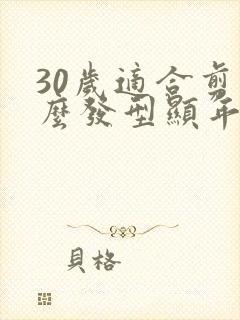 30歲適合剪
麼發型顯年
貝格